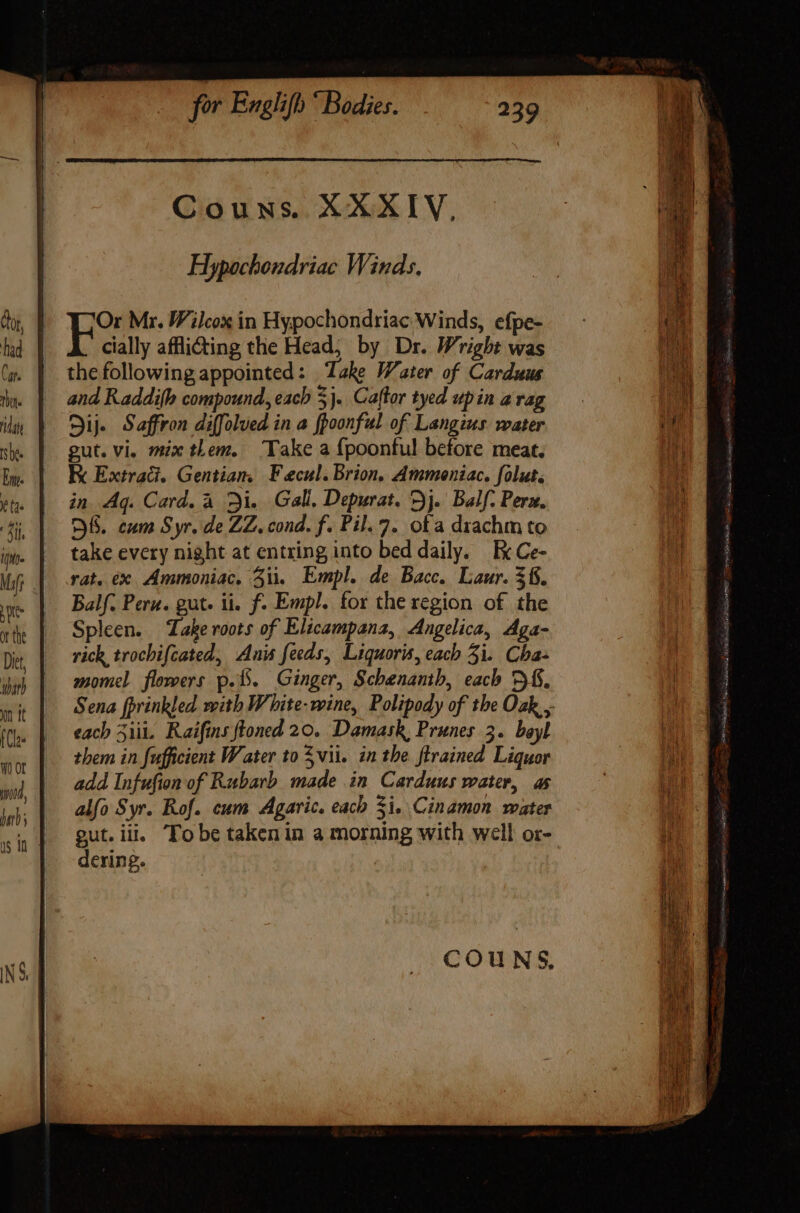 for Engliſh Bodies. 239
Couns. XXXIV.
Hypochondriac Winds.
FOr Mr. Wilcox in Hypochondriac Winds, eſpe-
cially afflicting the Head, by Dr. Wright was
the following appointed: Take Water of Carduus
and Raddiſh compound, each ℥j. Caſtor tyed up in a rag
℈ij. Saffron diſſolved in a ſpoonful of Langius water
gut. vi. mix them. Take a ſpoonful before meat.
℞ Extract. Gentian. Fecul. Brion. Ammoniac. ſolut.
in Aq. Card. a ℈i. Gall. Depurat. ℈j. Balſ. Peru.
℈ß. cum Syr. de ZZ. cond. f. Pil. 7. of a drachm to
take every night at entring into bed daily. ℞ Ce-
rat. ex Ammoniac. ℥ii. Empl. de Bacc. Laur. ℥ß.
Balſ. Peru. gut. ii. f. Empl. for the region of the
Spleen. Take roots of Elicampana, Angelica, Aga-
rick, trochiſcated, Anis ſeeds, Liquoris, each ʒi. Cha-
momel flowers p.ß. Ginger, Schenanth, each ℈ß.
Sena ſprinkled with White-wine, Polipody of the Oak,
each ʒiii. Raiſins ſtoned 20. Damask Prunes 3. boyl
them in ſufficient Water to ℥vii. in the ſtrained Liquor
add Infuſion of Rubarb made in Carduus water, as
alſo Syr. Roſ. cum Agaric. each ℥i. Cinamon water
gut. iii. To be taken in a morning with well or-
dering.
COUNS.